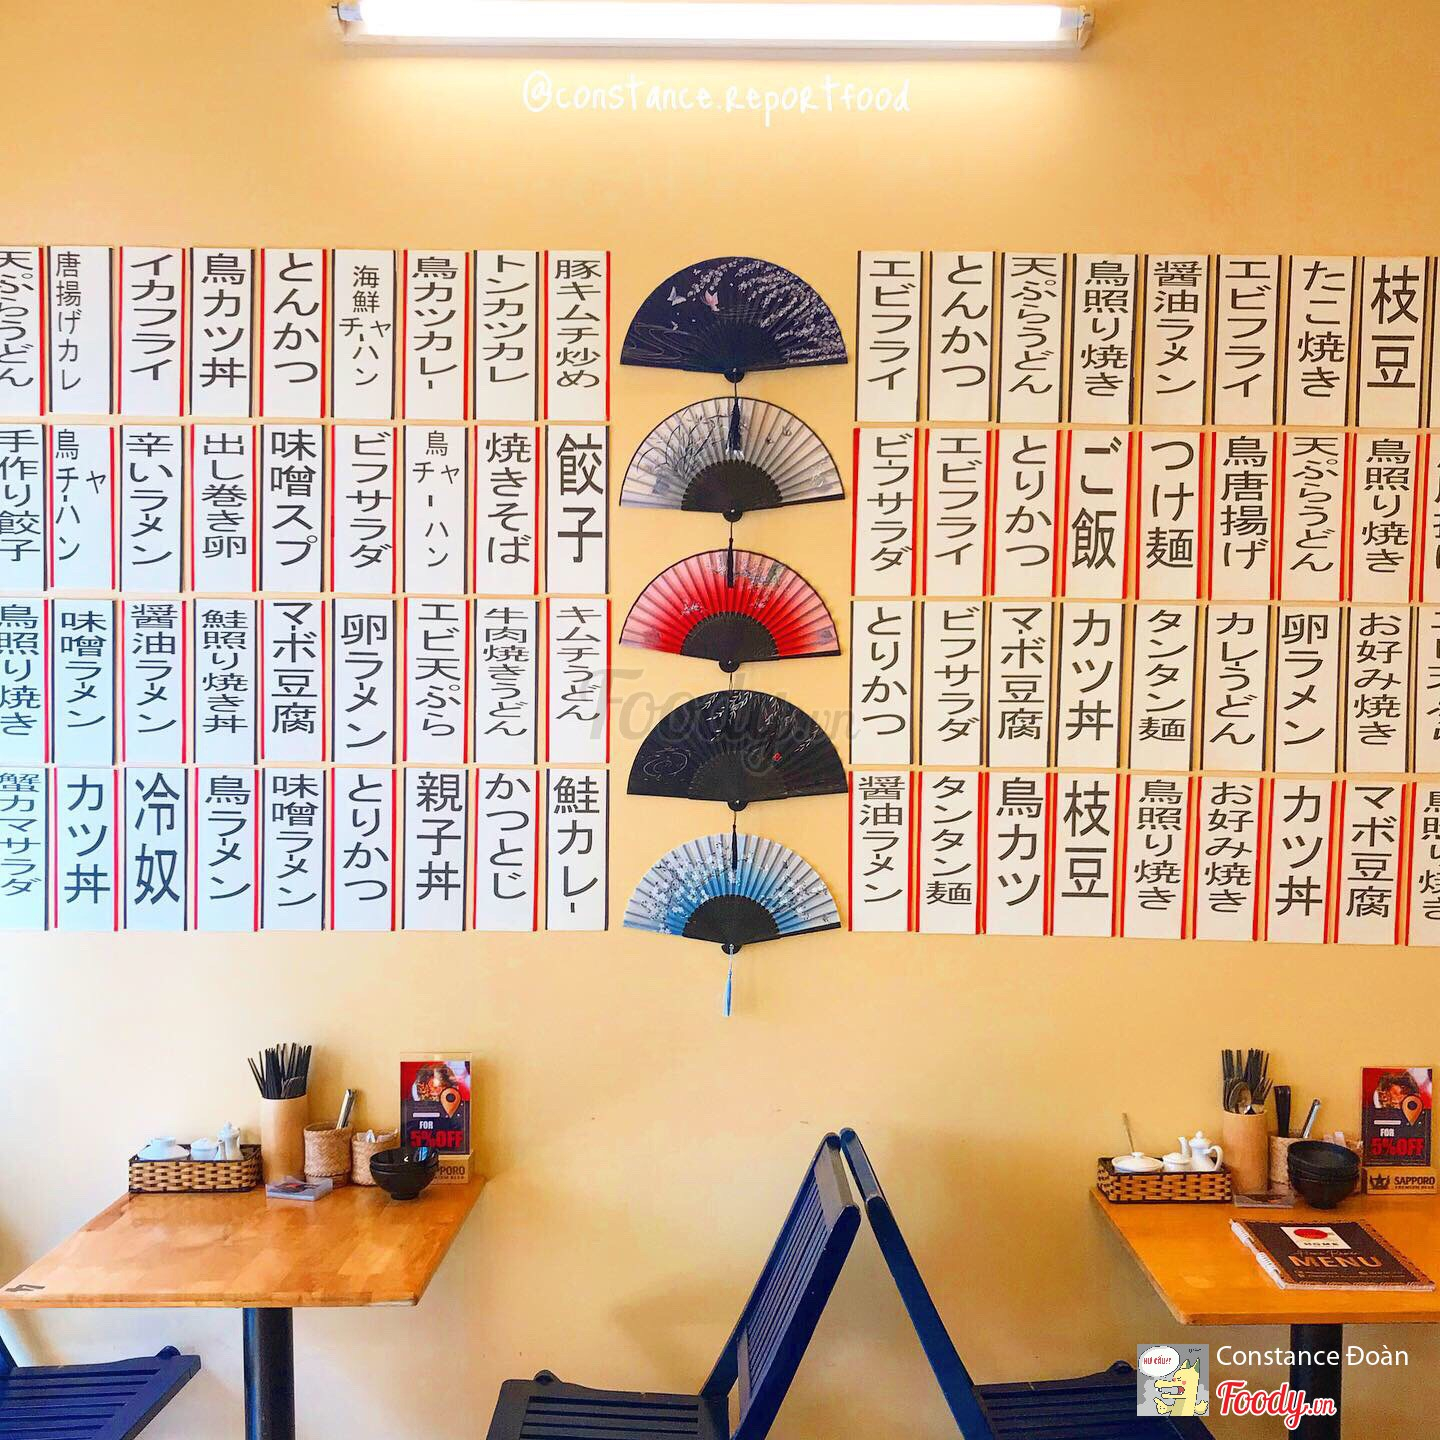 @constance.reportfood
天ぷらうどん
唐揚げカレ
イカフライ
鳥カツ丼
とんかつ
海鮮チャーハン
鳥カツカレー
トンカツカレ
豚キムチ炒め
エビフライ
とんかつ
天ぷらうどん
鳥照り焼き
醤油ラーメン
エビフライ
たこ焼き
枝豆
手作り餃子
鳥チャーハン
辛いラーメン
出し巻き卵
味噌スプ
ビフサラダ
鳥チャーハン
焼きそば
餃子
ビフサラダ
エビフライ
とりかつ
ご飯
つけ麺
鳥唐揚げ
天ぷらうどん
鳥照り焼き
鳥照り焼き
味噌ラーメン
醤油ラーメン
鮭照り焼き丼
マーボ豆腐
卵ラーメン
エビ天ぷら
牛肉焼きうどん
キムチうどん
とりかつ
ビフサラダ
マーボ豆腐
カツ丼
タンタン麺
カレーうどん
卵ラーメン
お好み焼き
蟹カマサラダ
カツ丼
冷奴
鳥ラーメン
味噌ラーメン
とりかつ
親子丼
かつとじ
鮭カレー
醤油ラーメン
タンタン麺
鳥カツ
枝豆
鳥照り焼き
お好み焼き
カツ丼
マボ豆腐
Foody.vn
FOR
5%OFF
SAPPORO
FOR
5%OFF
SAPPORO
PREMIUM BEER
HOME
MENU
HƯ CẤU!!
Constance Đoàn
Foody.vn